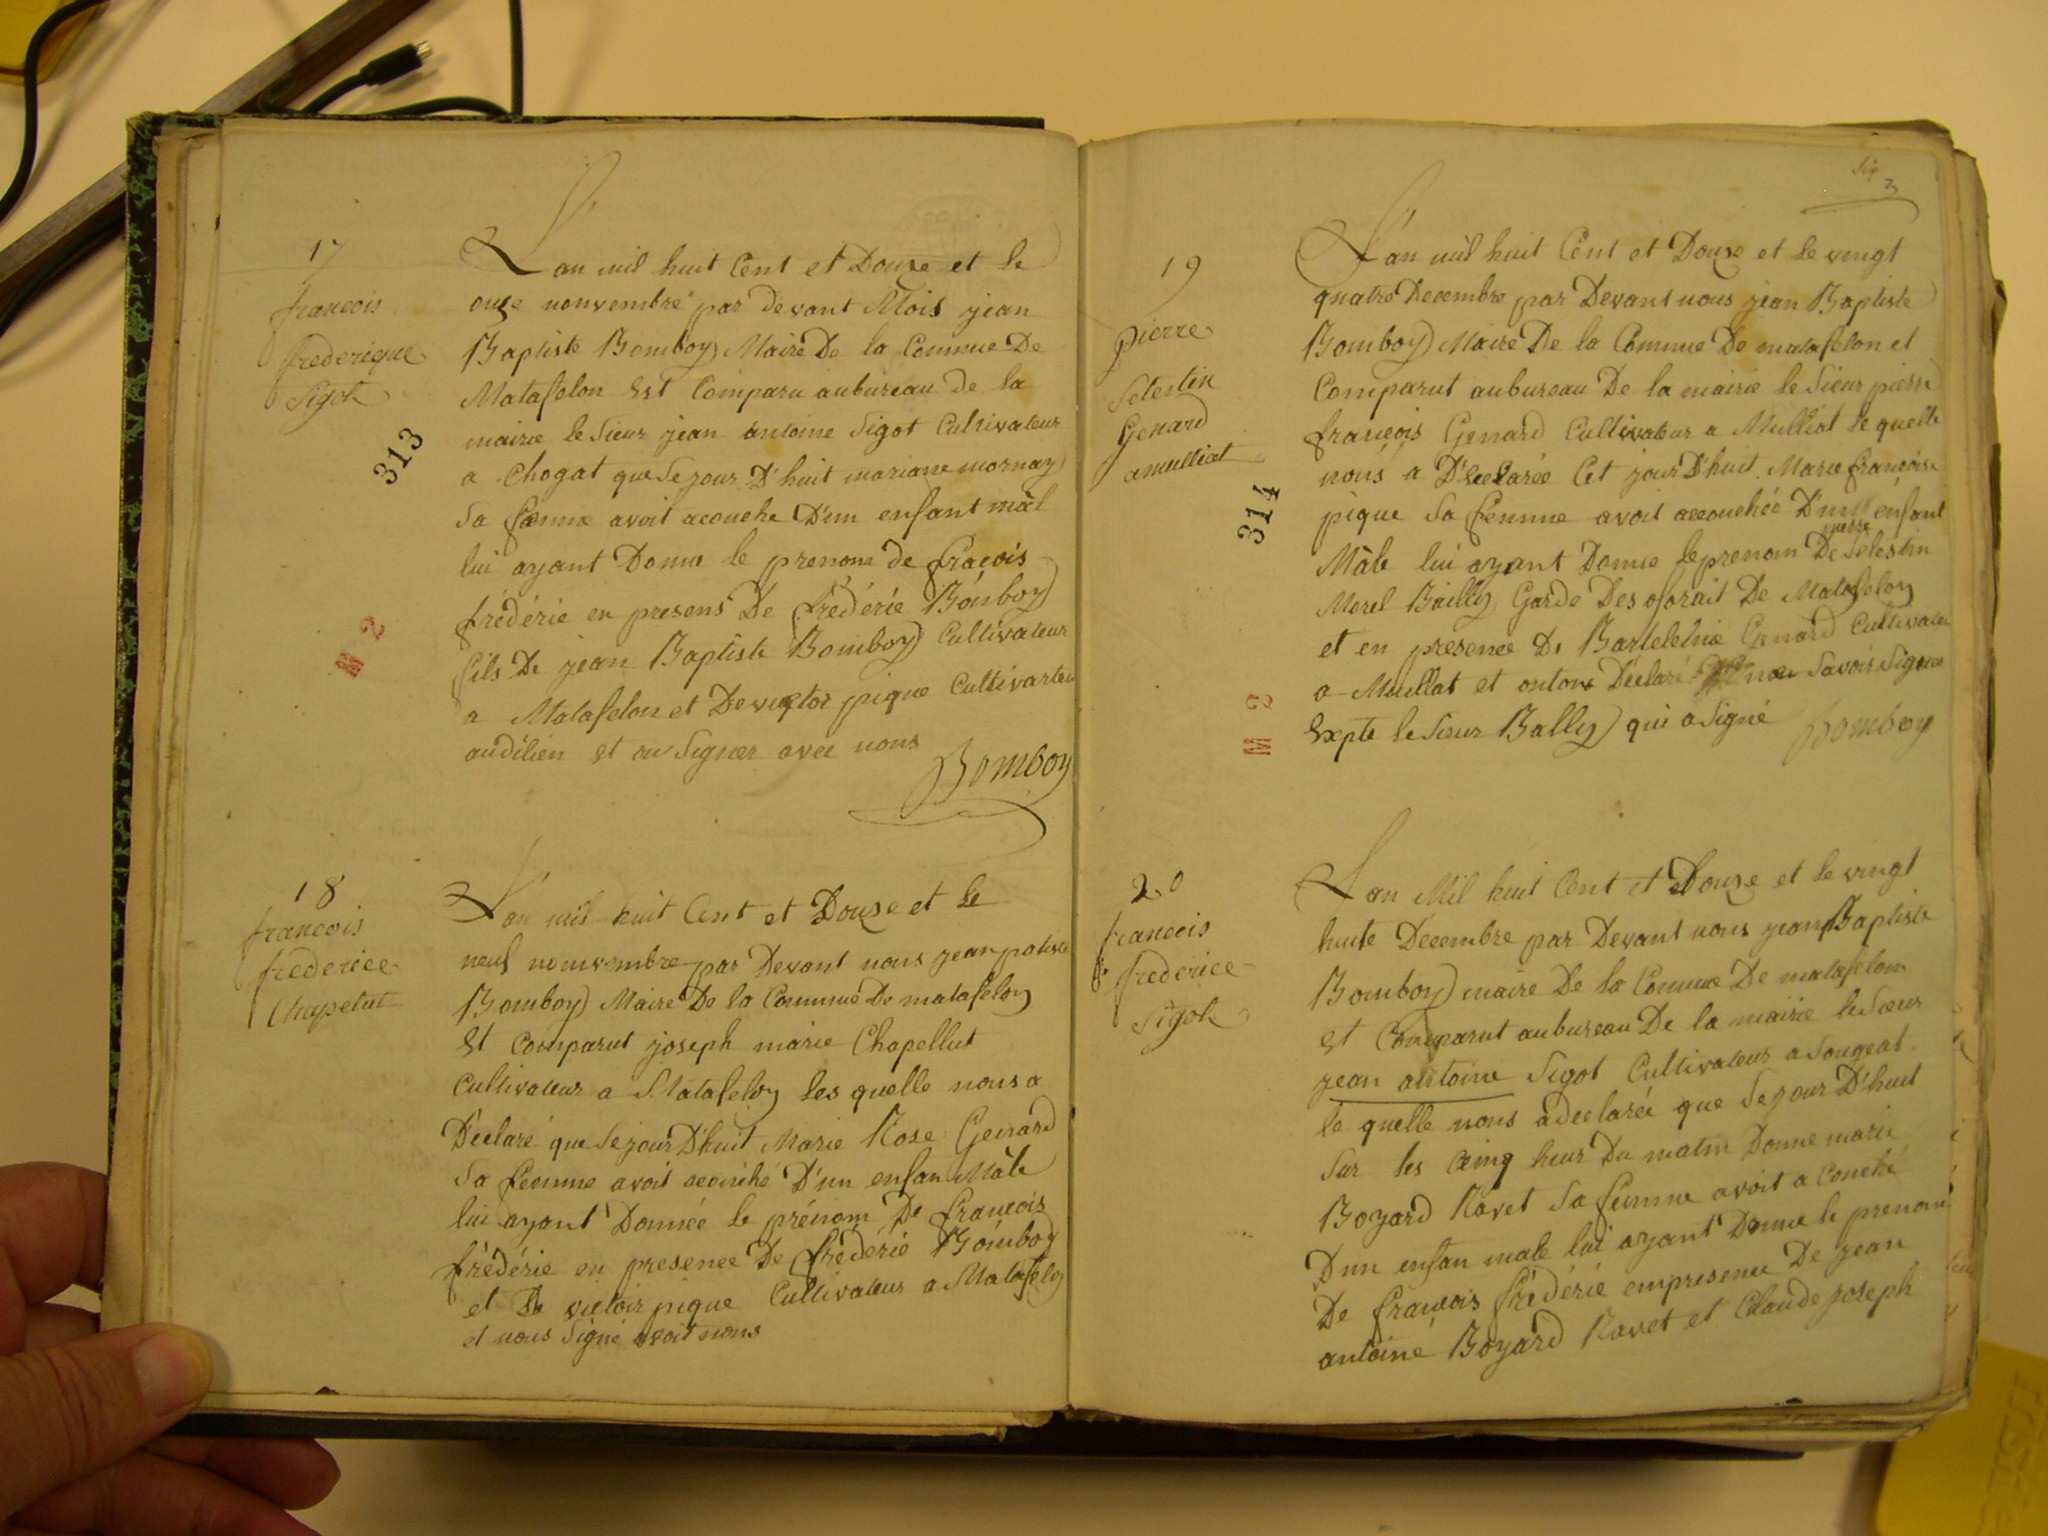 17
francois
frederique
Sigot
313
M 2
L'an mil huit Cent et Douze et le
onze nonvembre par devant Mois jean
Baptiste Bomboy Maire De la Commue De
Matafelon Est Comparu aubureau de la
mairie le Sieur jean antoine Sigot Cultivateur
a Chogat que Sejour D'huit mariane mornay
Sa femme avoit acouche D'un enfant mâl
lui ayant Donne le prenom de fracois
frédérie en presens De frédérie Bómboy
fils De jean Baptiste Bomboy Cultivateur
a Matafelon et De victor pique Cultivarteu
audilien et on Signer avec nous
Bomboy
18
francois
frederice
Chapelut
L'an mil huit Cent et Douze et le
neuf nomvembre par Devant nous jean patiste
Bomboy Maire De la Commue De matafelon
Est Comparut joseph marie Chapellut
Cultivateur a Matafelon les quelle nous a
Déclaré que Sejour D'huit Marie Rose Genard
Sa femme avoit acouché D'un enfan Mâle
lui ayant Donnée le prénom De francois
frédérie en presence De frédérie Bómboy
et De victoir pique Cultivateur a Matafelon
et nous Signé avoit nous
Sig
19
pierre
Selestin
Genard
amulliat
314
M 2
L'an mil huit Cent et Douze et le vingt
quatre Decembre par Devant nous jean Baptiste
Bomboy Maire De la Commue De matafelon et
Comparut aubureau De la mairie le Sieur pierre
francois Genard Cultivateur a Mulliat le quelle
nous a D'eclarée Cet jour D'huit Marie francoise
pique Sa femme avoit accouchée D'un enfant
pierre
Mâle lui ayant Donne le prenom De Selestin
Morel Bailly Garde Des oforait De Matafelon
et en presence De Bartelemie Genard Cultivateu
a Muellat et onton Déclaré nou Savoir Signer
Expte le Sieur Bally qui a Signé Bomboy
20
francois
frederice
Sigot
L'an Mil huit Cent et Douze et le vingt
huite Décembre par Devant nous jean Baptiste
Bomboy maire De la Commue De matafelon
et Comparut aubureau De la mairie le Sieur
jean antoine Sigot Cultivateur a Sougeat
le quelle nous adeclarée que Sejour D'huit
Sur les Cinq heur Du matin Donne marie
Boyard Ravet Sa femme avoit a Couché
D'un enfan male lui ayant Donne le prenom
De francois frédérie empresence De jean
antoine Boyard Ravet et Claude joseph